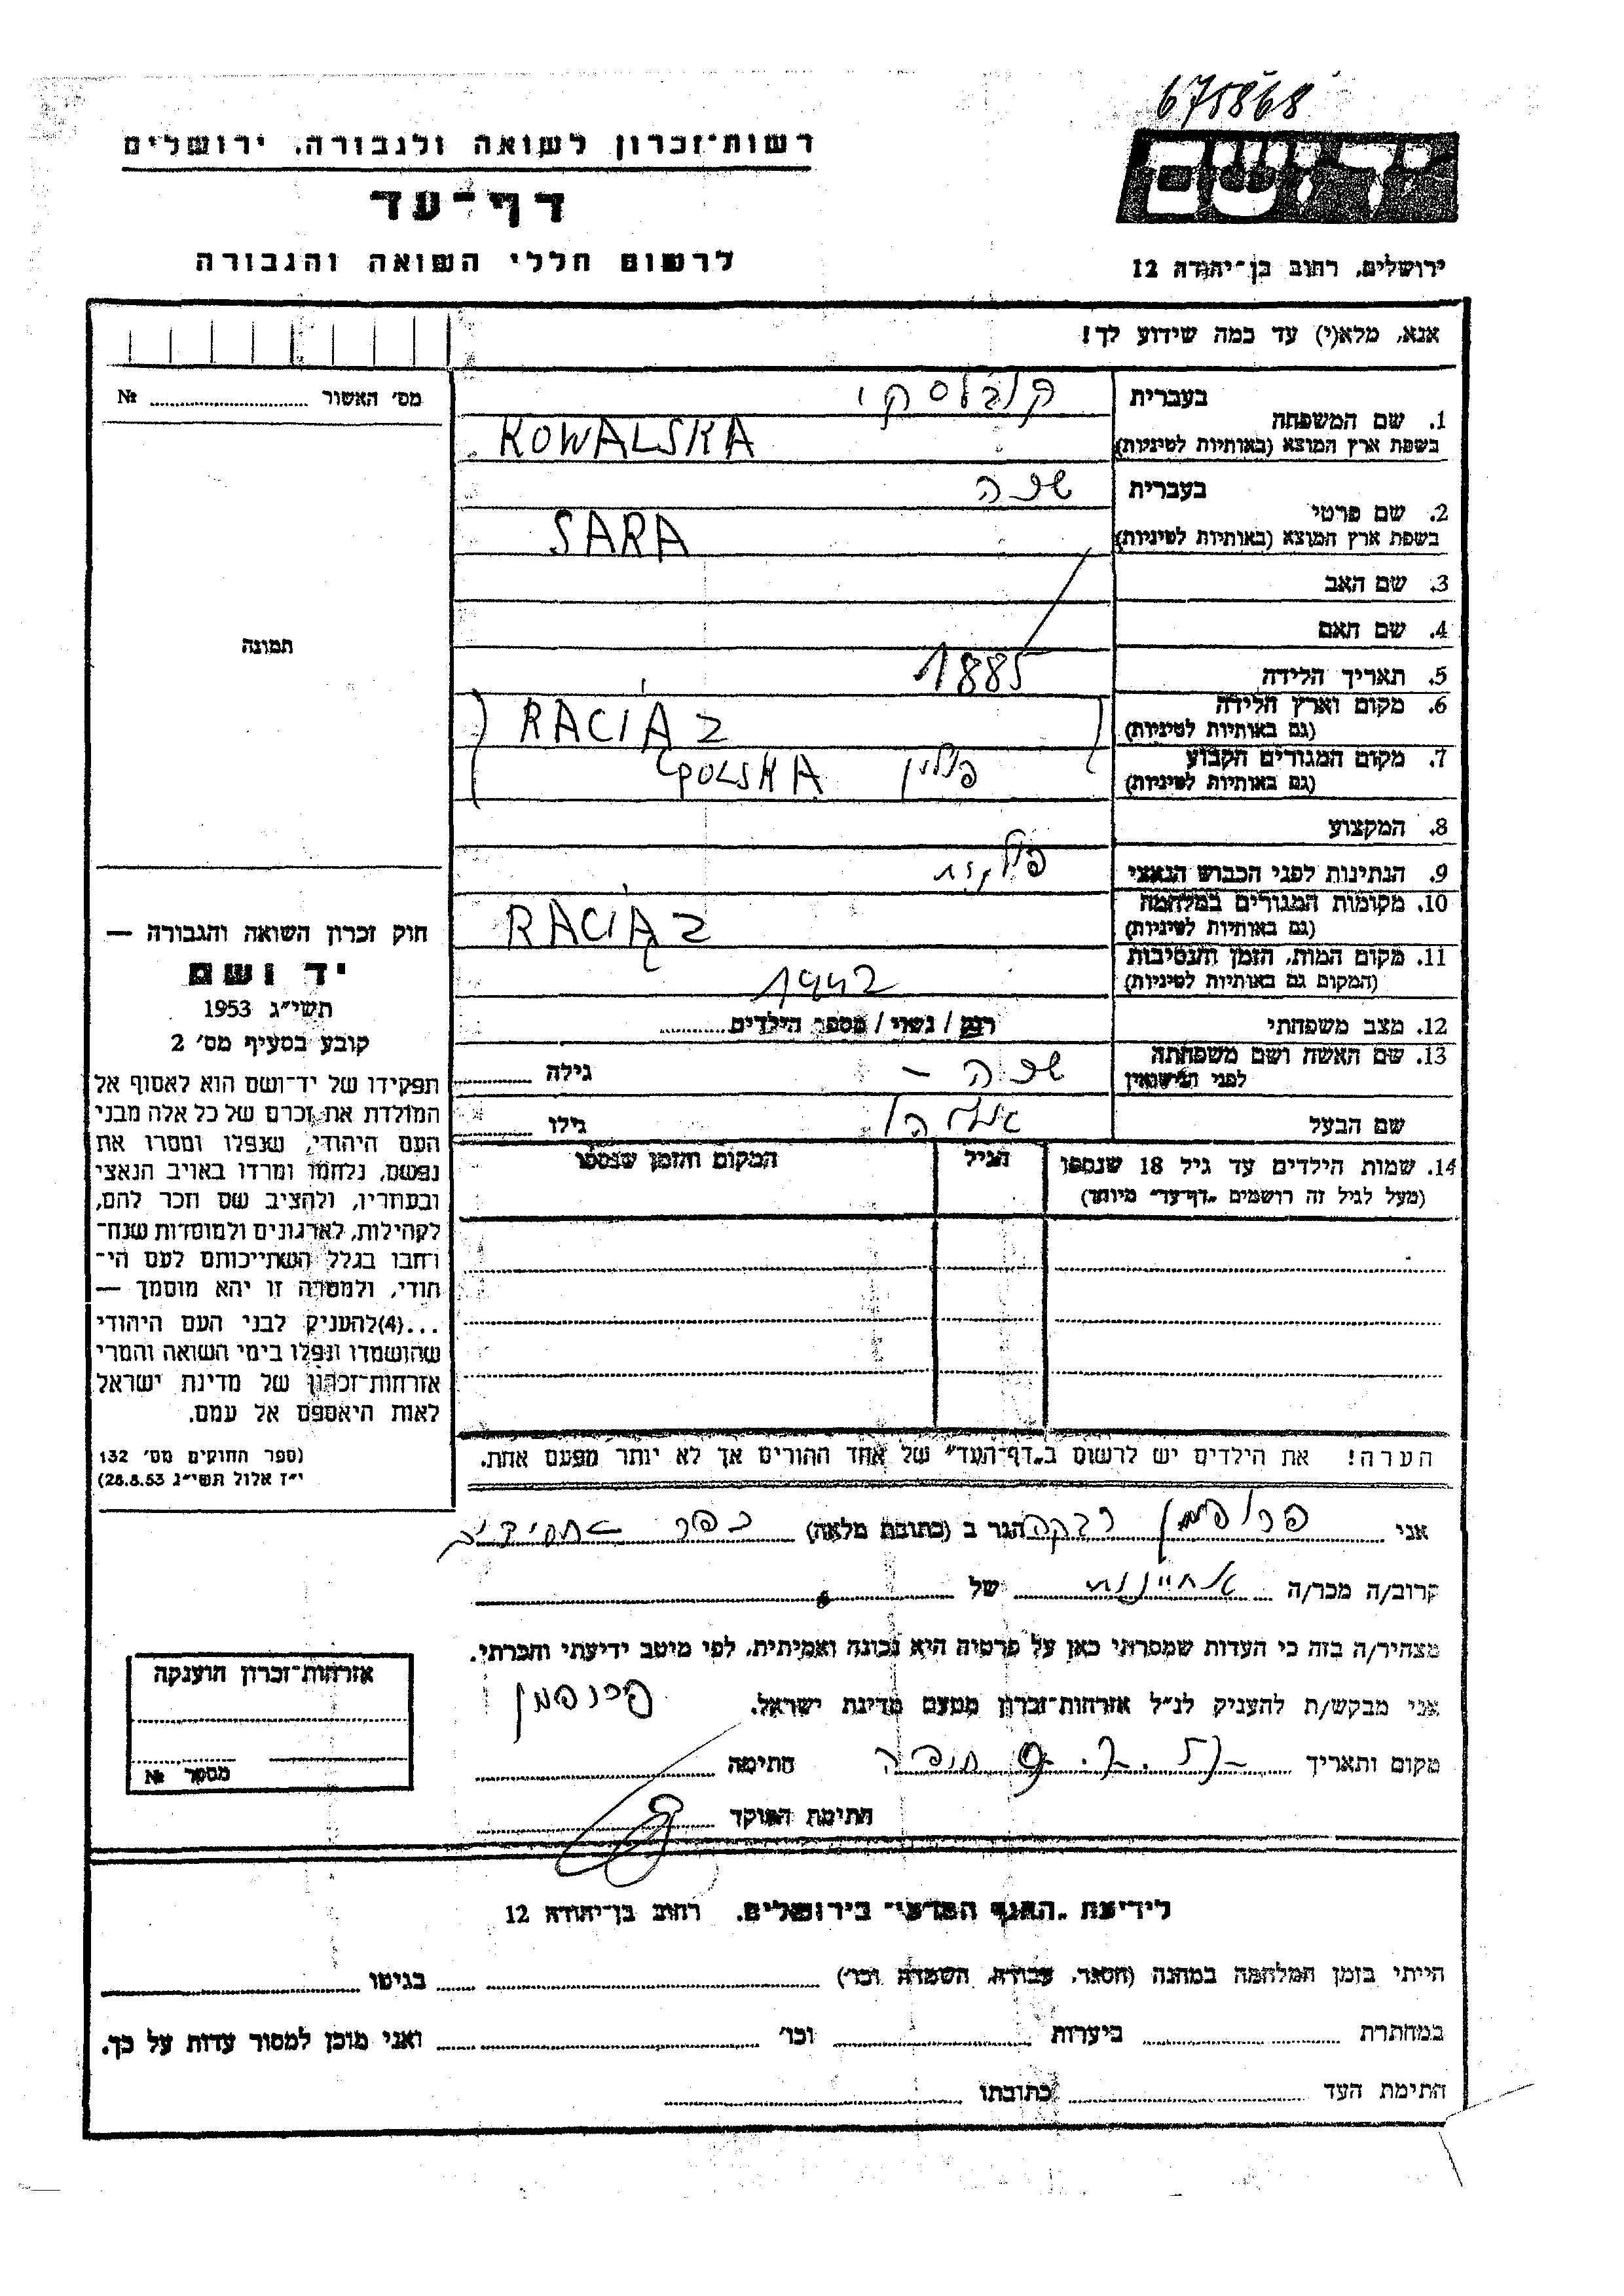 675868
יד ושם
רשות־זכרון לשואה ולגבורה, ירושלים
דף־עד
לרשום חללי השואה והגבורה
ירושלים, רחוב בן־יהודה 12
אנא, מלא(י) עד כמה שידוע לך!
מס׳ האשור № 
1. שם המשפחה
בעברית קובלסקי
בשפת ארץ המוצא (באותיות לטיניות) KOWALSKA
2. שם פרטי
בעברית שרה
בשפת ארץ המוצא (באותיות לטיניות) SARA
3. שם האב
4. שם האם
תמונה
5. תאריך הלידה 1885
6. מקום וארץ הלידה
(גם באותיות לטיניות) RACIĄZ
7. מקום המגורים הקבוע
(גם באותיות לטיניות) פולין POLSKA
8. המקצוע
9. הנתינות לפני הכבוש הנאצי פולנית
10. מקומות המגורים במלחמה
(גם באותיות לטיניות) RACIĄZ
11. מקום המות, הזמן והנסיבות
(המקום גם באותיות לטיניות) 1942
12. מצב משפחתי רווק / נשוי / מספר הילדים
13. שם האשה ושם משפחתה
לפני הנישואין שרה – גילה
שם הבעל גילו
14. שמות הילדים עד גיל 18 שנספו הגיל המקום והזמן שנספו
(מעל לגיל זה רושמים „דף־עד״ מיוחד)
הערה! את הילדים יש לרשום ב„דף־העד״ של אחד ההורים אך לא יותר מפעם אחת.
חוק זכרון השואה והגבורה —
יד ושם
תשי״ג 1953
קובע בסעיף מס׳ 2
תפקידו של יד־ושם הוא לאסוף אל
המולדת את זכרם של כל אלה מבני
העם היהודי, שנפלו ומסרו את
נפשם, נלחמו ומרדו באויב הנאצי
ובעוזריו, ולהציב שם וזכר להם,
לקהילות, לארגונים ולמוסדות שנח־
רבו בגלל השתייכותם לעם הי־
הודי, ולמטרה זו יהא מוסמך —
...(4)להעניק לבני העם היהודי
שהושמדו ונפלו בימי השואה והמרי
אזרחות־זכרון של מדינת ישראל
לאות היאספם אל עמם.
(ספר החוקים מס׳ 132
י״ז אלול תשי״ג 28.8.53)
אני רבקה הגר ב (כתובת מלאה) כפר
קרוב/ה מכר/ה אחיינית של
מצהיר/ה בזה כי העדות שמסרתי כאן על פרטיה היא נכונה ואמיתית, לפי מיטב ידיעתי והכרתי.
אני מבקש/ת להעניק לנ״ל אזרחות־זכרון מטעם מדינת ישראל.
מקום ותאריך חתימה
חתימת הפוקד
אזרחות־זכרון הוענקה
מספר №
לידיעת „האגף המדעי״ בירושלים, רחוב בן־יהודה 12
הייתי בזמן המלחמה במחנה (הסגר, עבודה, השמדה וכו׳) בגיטו
במחתרת ביערות וכו׳ ואני מוכן למסור עדות על כך.
חתימת העד כתובתו